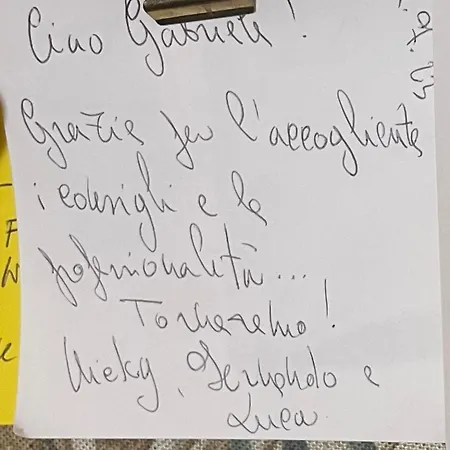 Ciao Gabriele!
Grazie per l'accogliente
i consigli e la
professionalità...
Torneremo!
Micky, Fernando e
Luca